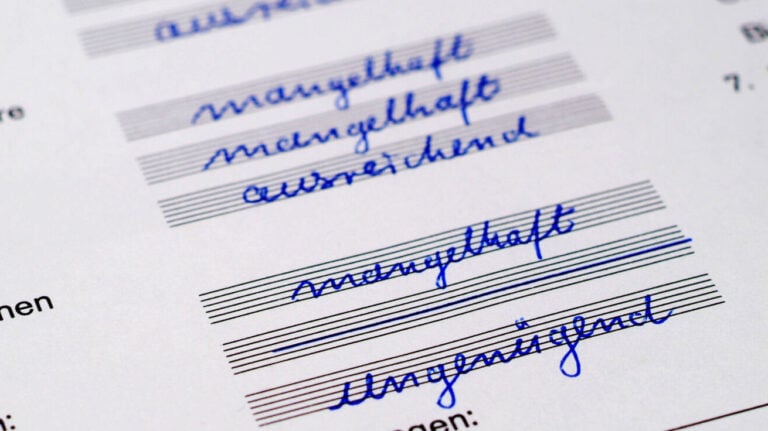 mangelhaft
mangelhaft
ausreichend
mangelhaft
ungenügend
7.